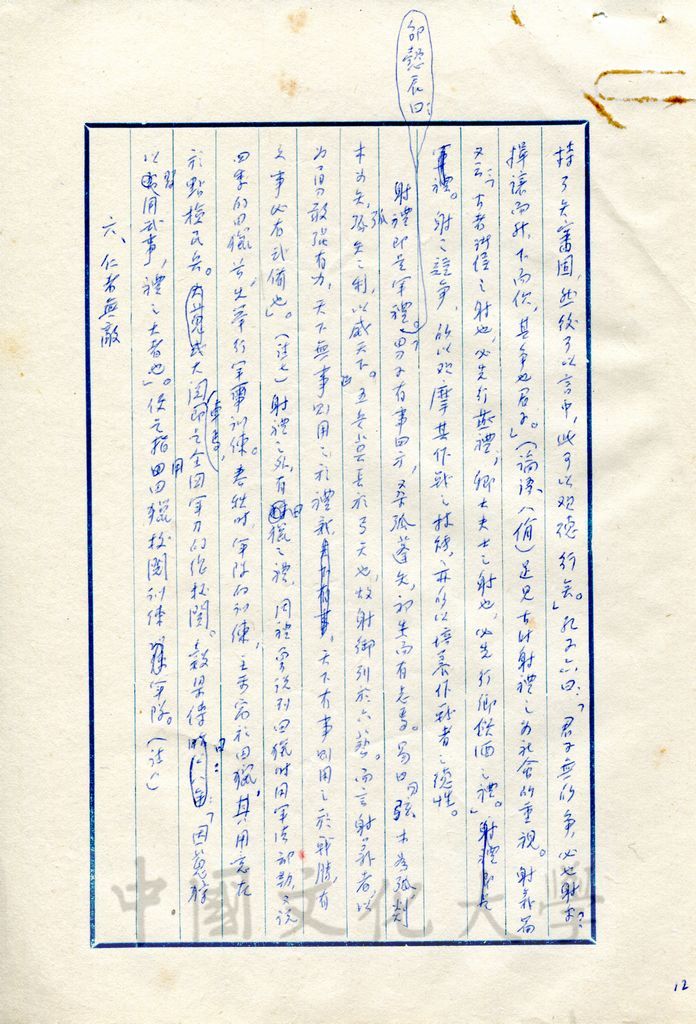 邵懿辰曰：
持弓矢審固，然後可以言中，此可以观德行矣。」孔子亦曰：「君子無所爭，必也射乎？
揖讓而升，下而飲，其爭也君子。」（論語八佾）足見古時射禮之為社會所重視。射義篇
又云：「古者諸侯之射也，必先行燕禮；卿大夫士之射也，必先行鄉飲酒之禮。」射禮即是
軍禮。射之競爭，所以观摩其作戰之技術，亦所以培養作戰者之德性。
射禮即是軍禮。「男子有事四方，桑弧蓬矢，初生而有志焉。易曰『弦木為弧，剡
木為矢，弧矢之利，以威天下。』五兵莫長於弓矢也，故射御列於六藝。而言射義者，以
為勇敢强有力，天下無事則用之於禮義，天下有事則用之於戰勝，有
文事必有武備也」。（註七）射禮之外，有田獵之禮，周禮曾說到田獵時用軍法部勒，又說
四季的田獵前，先舉行軍事訓練。春秋時，軍隊的訓練，主要寓於田獵，其用意在
於點檢民兵。大閱即是全國軍力的作校閱。穀梁傳曰：「因蒐狩
以習用武事，禮之大者也」。便是指用田獵校閱訓練軍隊。（註八）
六、仁者無敵
12
中國文化大學